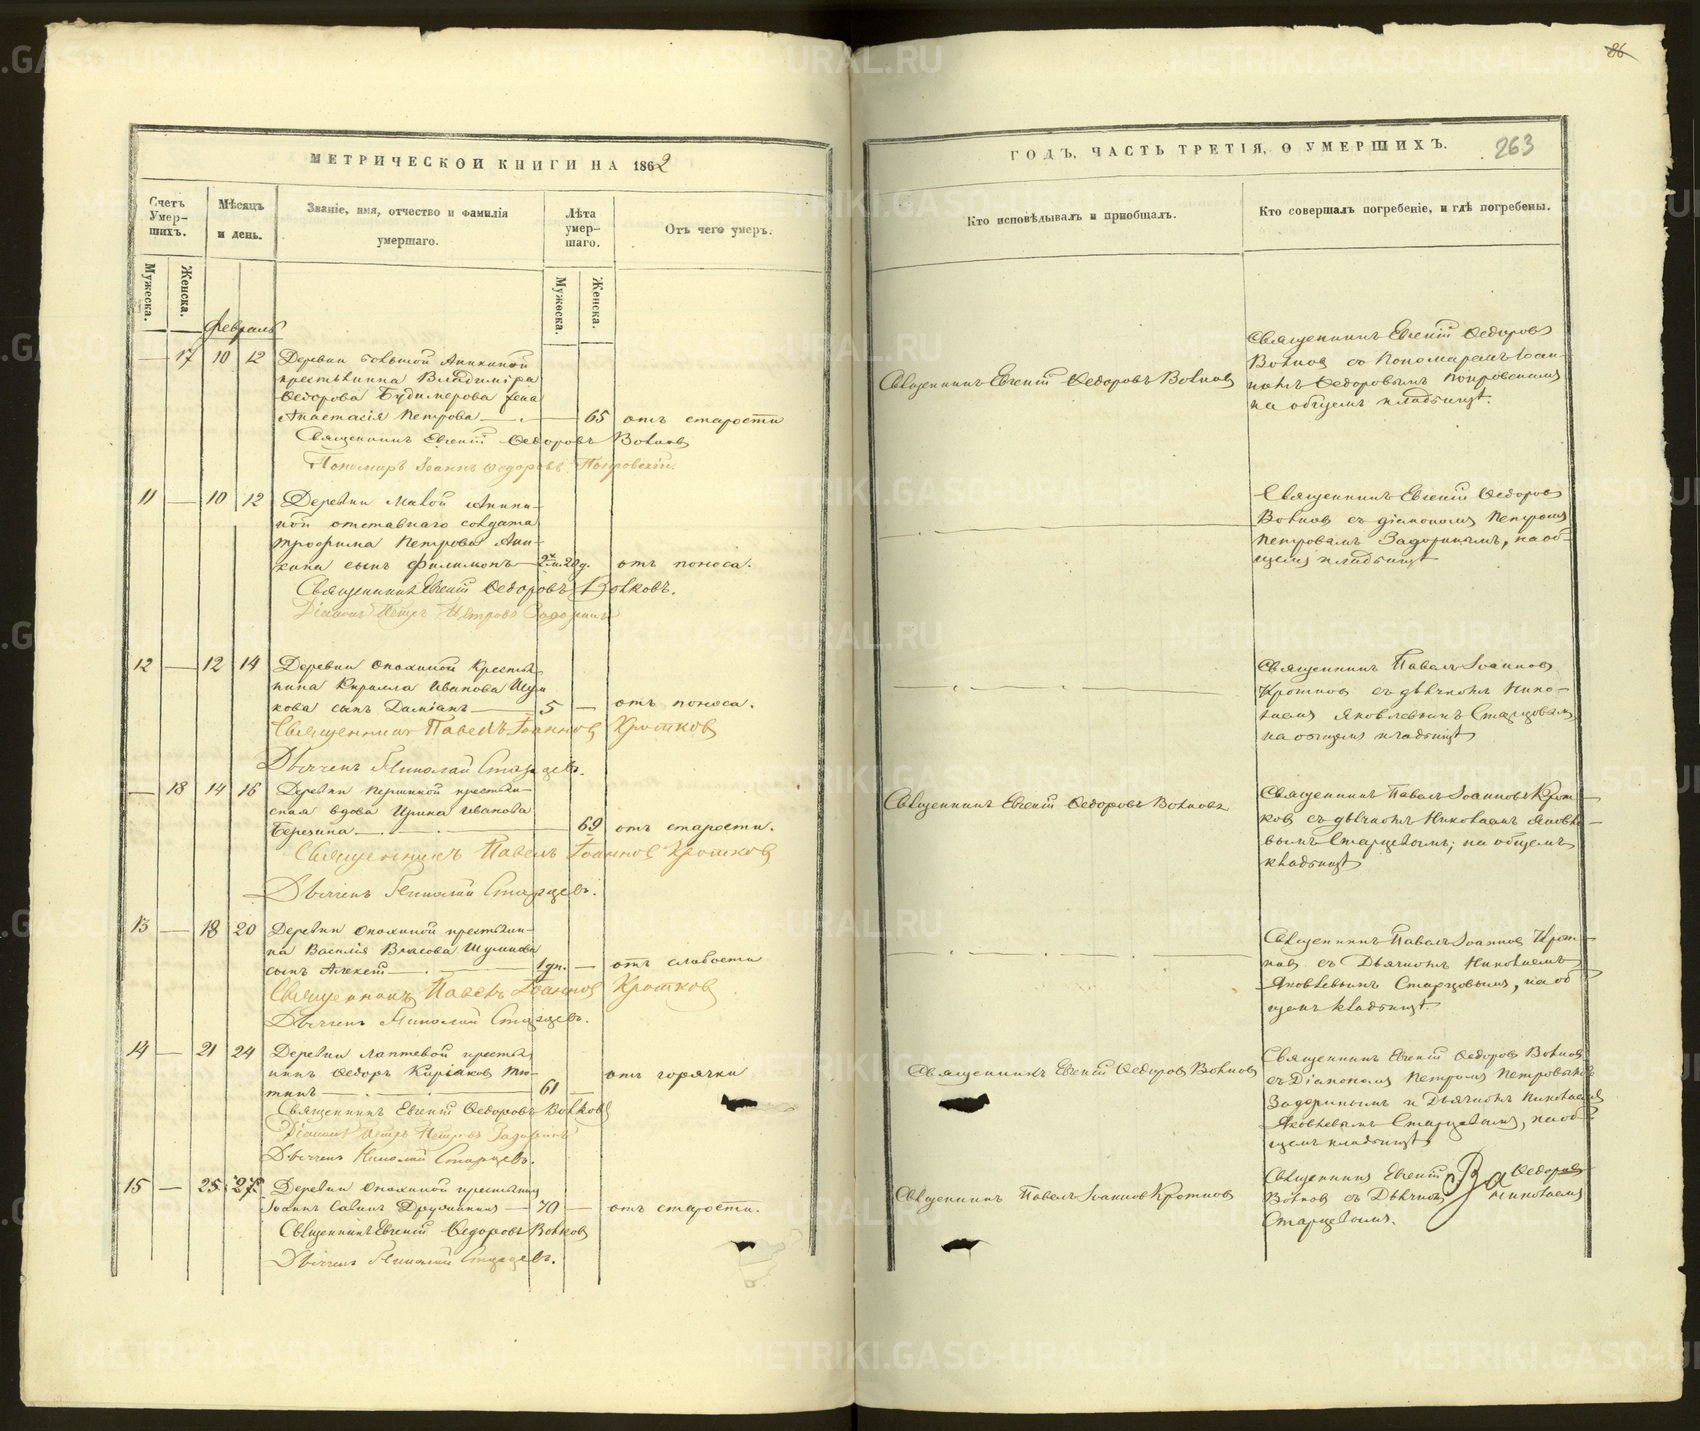 МЕТРИЧЕСКОЙ КНИГИ НА 1862
Счетъ Умер-шихъ.
Мѣсяцъ и день.
Званіе, имя, отчество и фамилія умершаго.
Лѣта умер-шаго.
Отъ чего умеръ.
Мужеска.
Женска.
Мужеска.
Женска.
Февраль
— 17 10 12 Деревни Большой Аникиной
крестьянина Владиміра
Ѳедорова
жена
Анастасія Петрова — 65 отъ старости
Священникъ Евгеній Ѳедоровъ Волковъ
Пономарь Іоаннъ Ѳедоровъ Покровскій.
11 — 10 12 Деревни Малой Аники-
ной отставнаго солдата
Трофима Петрова Ани-
кина сынъ Филимонъ — отъ поноса.
Священникъ Евгеній Ѳедоровъ Волковъ.
Діаконъ Петръ Петровъ Задоринъ
12 — 12 14 Деревни Опохиной крестья-
нина Кирилла Иванова Шум-
кова сынъ Даміанъ — 5 — отъ поноса.
Священникъ Павелъ Іоанновъ Кротковъ
Дьячекъ Николай Старцевъ.
— 18 14 16 Деревни Першиной крестьян-
ская вдова Ирина Иванова
Березина — 69 отъ старости.
Священникъ Павелъ Іоанновъ Кротковъ
Дьячекъ Николай Старцевъ.
13 — 18 20 Деревни Опохиной крестьяни-
на Василія Власова Шумкова
сынъ Алексій — 1 дн. — отъ слабости
Священникъ Павелъ Іоанновъ Кротковъ
Дьячекъ Николай Старцевъ.
14 — 21 24 Деревни Лаптевой крестья-
нинъ Ѳедоръ Киріаковъ Тю-
тинъ — 61 — отъ горячки
Священникъ Евгеній Ѳедоровъ Волковъ
Діаконъ Петръ Петровъ Задоринъ
Дьячекъ Николай Старцевъ.
15 — 25 27 Деревни Опохиной крестьянинъ
Іоаннъ Савинъ — 70 — отъ старости.
Священникъ Евгеній Ѳедоровъ Волковъ
Дьячекъ Николай Старцевъ.
86
ГОДЪ, ЧАСТЬ ТРЕТІЯ, О УМЕРШИХЪ.
263
Кто исповѣдывалъ и пріобщалъ.
Кто совершалъ погребеніе, и гдѣ погребены.
Священникъ Евгеній Ѳедоровъ Волковъ
Священникъ Евгеній Ѳедоровъ
Волковъ съ Пономаремъ Іоан-
номъ Ѳедоровымъ Покровскимъ
на общемъ кладбищѣ.
Священникъ Евгеній Ѳедоровъ
Волковъ съ діакономъ Петромъ
Петровымъ Задоринымъ, на об-
щемъ кладбищѣ
Священникъ Павелъ Іоанновъ
Кротковъ съ дьячкомъ Нико-
лаемъ Яковлевымъ Старцовымъ
на общемъ кладбищѣ
Священникъ Евгеній Ѳедоровъ Волковъ
Священникъ Павелъ Іоанновъ Крот-
ковъ съ дьячкомъ Николаемъ Яковле-
вымъ Старцевымъ, на общемъ
кладбищѣ
Священникъ Павелъ Іоанновъ Крот-
ковъ съ Дьячкомъ Николаемъ
Яковлевымъ Старцовымъ, на об-
щемъ кладбищѣ
Священникъ Евгеній Ѳедоровъ Волковъ
Священникъ Евгеній Ѳедоровъ Волковъ
съ Діакономъ Петромъ Петровымъ
Задоринымъ и Дьячкомъ Николаемъ
Яковлевымъ Старцевымъ, на об-
щемъ кладбищѣ
Священникъ Павелъ Іоанновъ Кротковъ
Священникъ Евгеній Ѳедоровъ
Волковъ съ Дьячкомъ Николаемъ
Старцевымъ.
METRIKI.GASO-URAL.RU